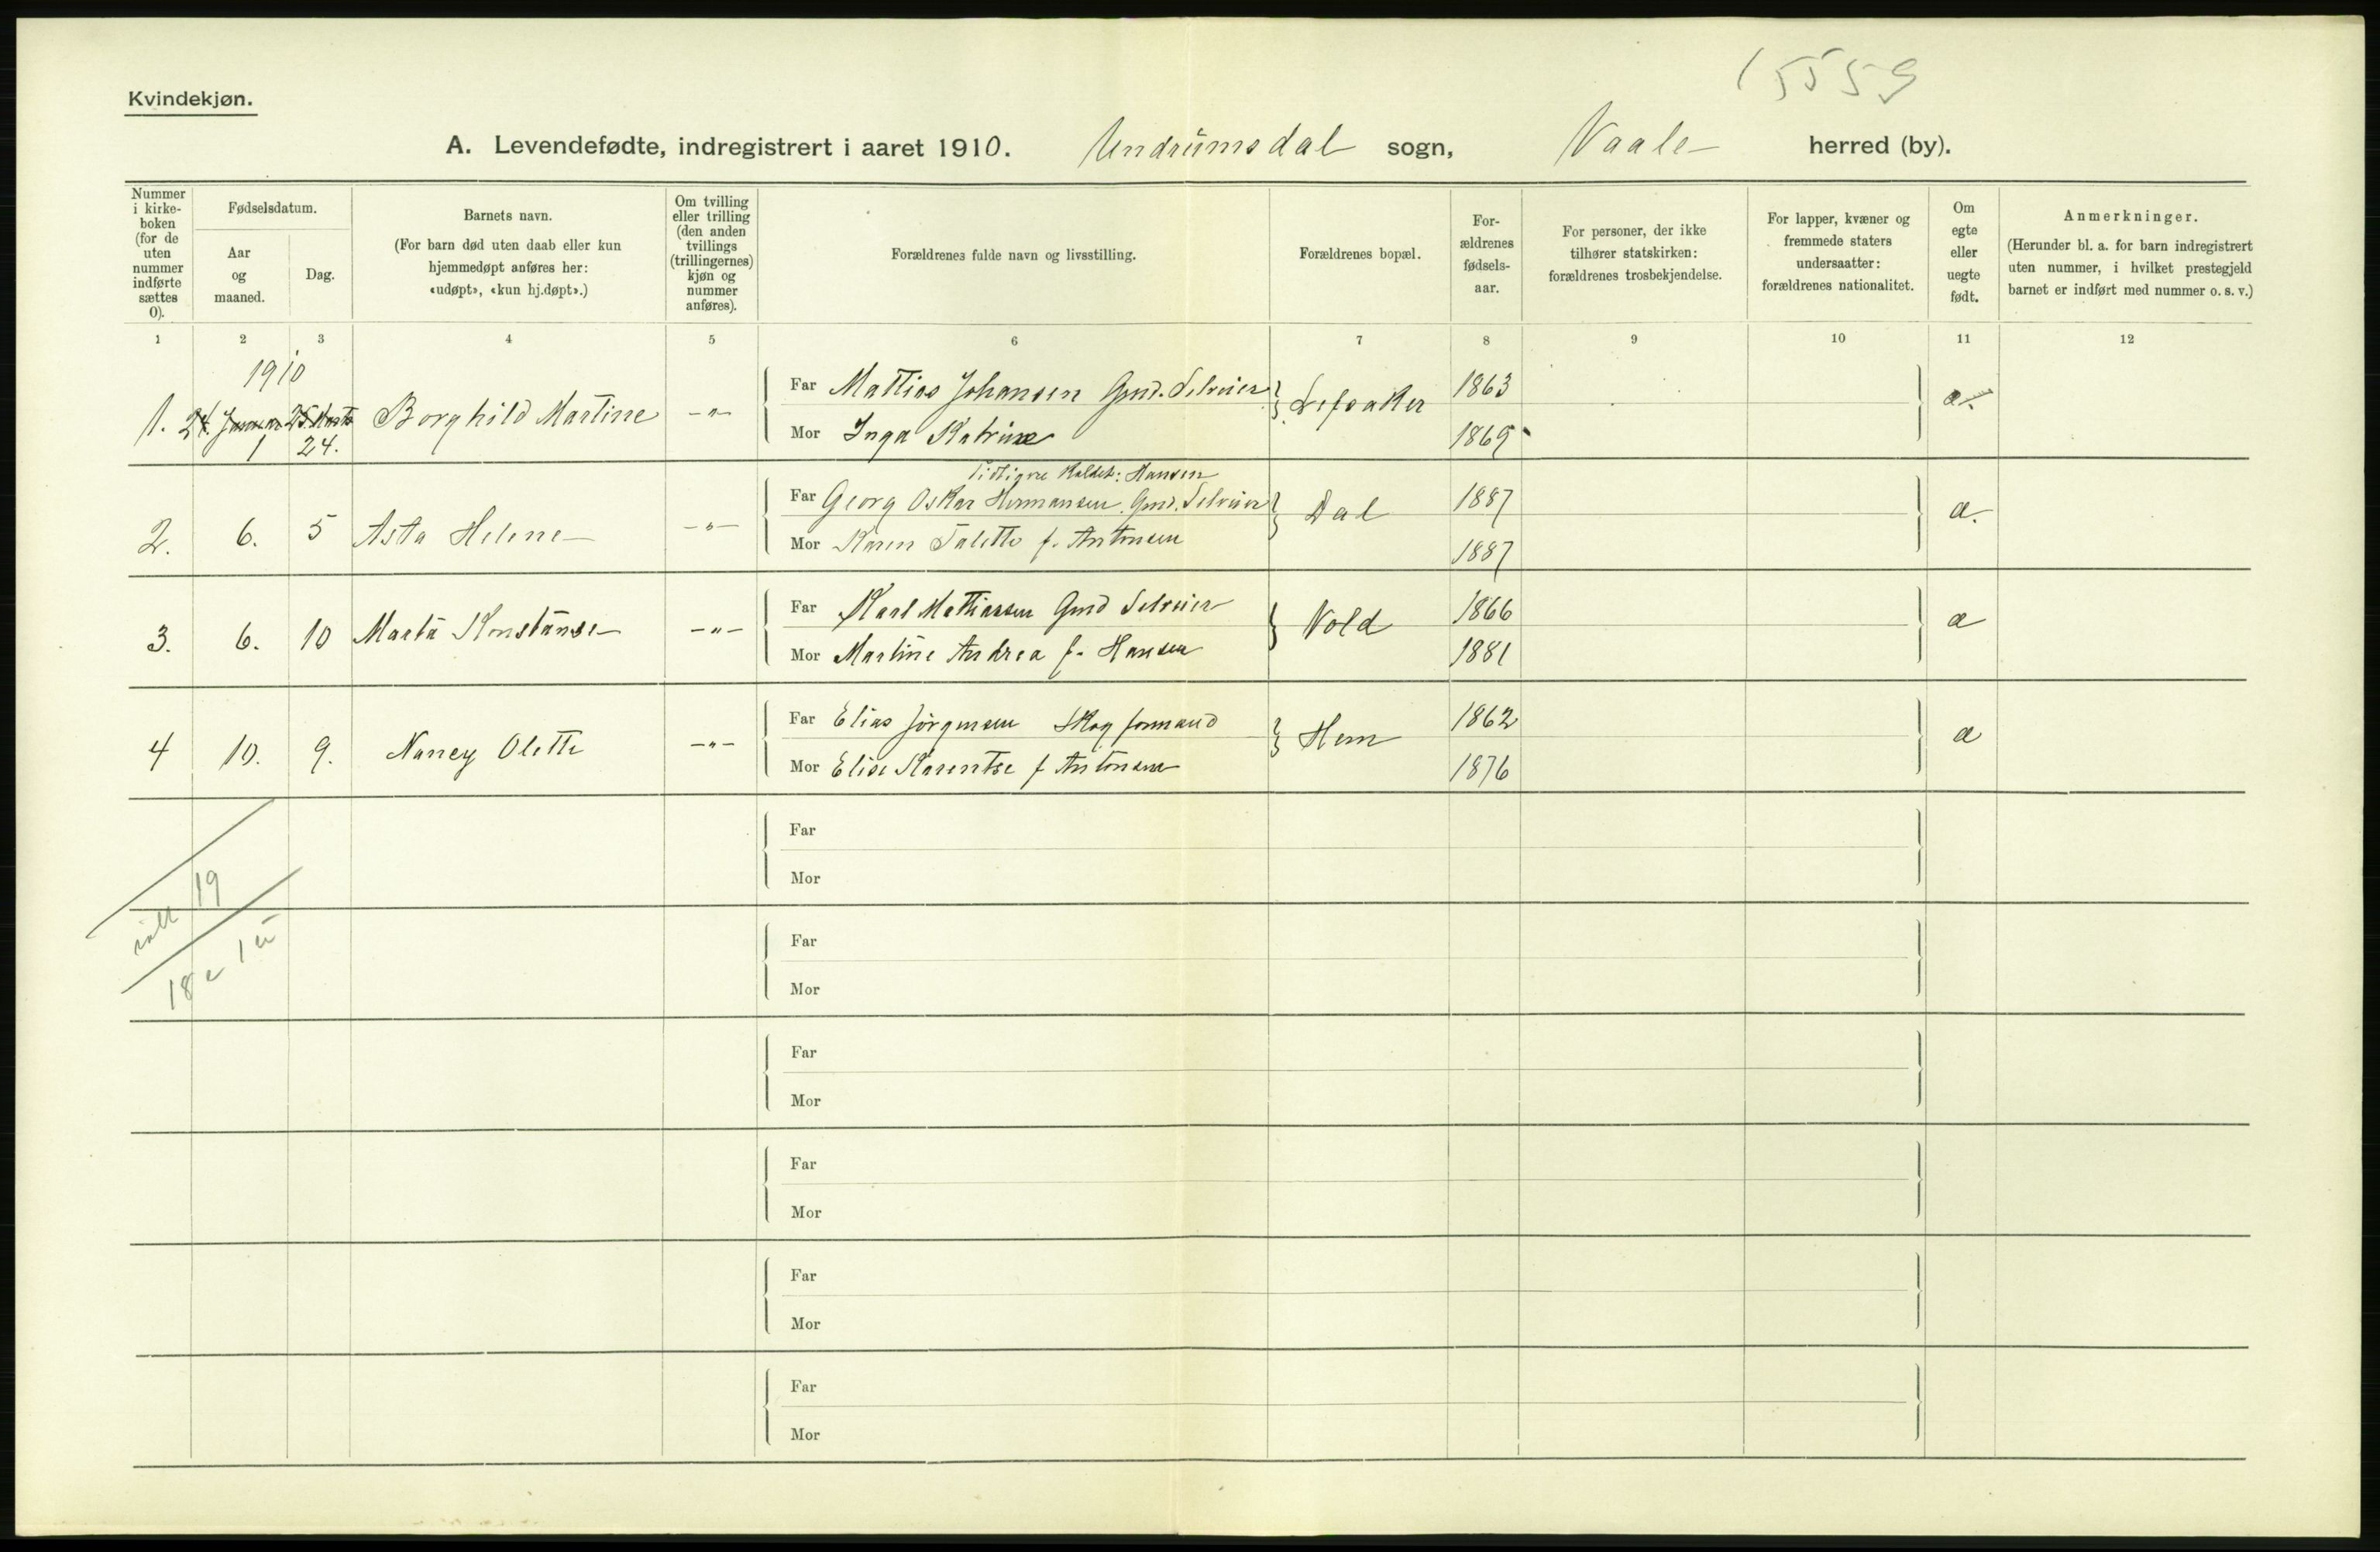 15559
Kvindekjøn.
A. Levendefødte, indregistrert i aaret 1910. Undrumsdal sogn, Vaale herred (by).
Nummer i kirke-boken (for de uten nummer indførte sættes 0).
Fødselsdatum.
Aar og maaned.
Dag.
Barnets navn.
(For barn død uten daab eller kun hjemmedøpt anføres her: «udøpt», «kun hj.døpt».)
Om tvilling eller trilling (den anden tvillings (trillingernes) kjøn og nummer anføres).
Forældrenes fulde navn og livsstilling.
Forældrenes bopæl.
For-ældrenes fødsels-aar.
For personer, der ikke tilhører statskirken: forældrenes trosbekjendelse.
For lapper, kvæner og fremmede staters undersaatter: forældrenes nationalitet.
Om egte eller uegte født.
Anmerkninger.
(Herunder bl. a. for barn indregistrert uten nummer, i hvilket prestegjeld barnet er indført med nummer o. s. v.)
1 2 3 4 5 6 7 8 9 10 11 12
1910
1. 24. Januar 25 Marts Borghild Martine -"- Far Mattias Johansen Gmd. Selveier Lefsaker 1863 a.
1 24. Mor Inga Katrine 1869
Tidligere Kaldet: Hansen
2. 6. 5 Asta Helene -"- Far Georg Oskar Hermansen. Gmd. Selveier Dal 1887 a.
Mor Karen Talette f. Antonsen 1887
3. 6. 10 Marta Konstanse -"- Far Karl Mathiassen Gmd Selveier Vold 1866 a
Mor Martine Andrea f. Hansen 1881
4 10. 9. Nancy Olette -"- Far Elias Jörgensen Skogformand Hem 1862 a
Mor Elise Karentse f Antonsen 1876
Far
Mor
ialt 19
18 e 1 u
Far
Mor
Far
Mor
Far
Mor
Far
Mor
Far
Mor